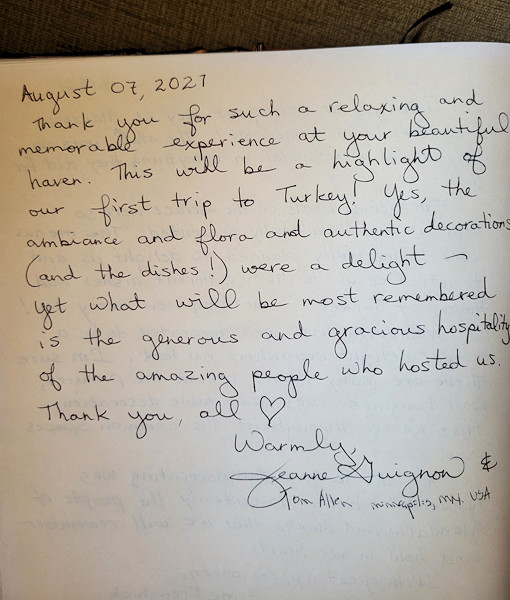 August 07, 2021
Thank you for such a relaxing and
memorable experience at your beautiful
haven. This will be a highlight of
our first trip to Turkey! Yes, the
ambiance and flora and authentic decorations
(and the dishes!) were a delight –
yet what will be most remembered
is the generous and gracious hospitality
of the amazing people who hosted us.
Thank you, all ♡
Warmly,
Jeanne Guignon &
Tom Allen minneapolis, MN. USA